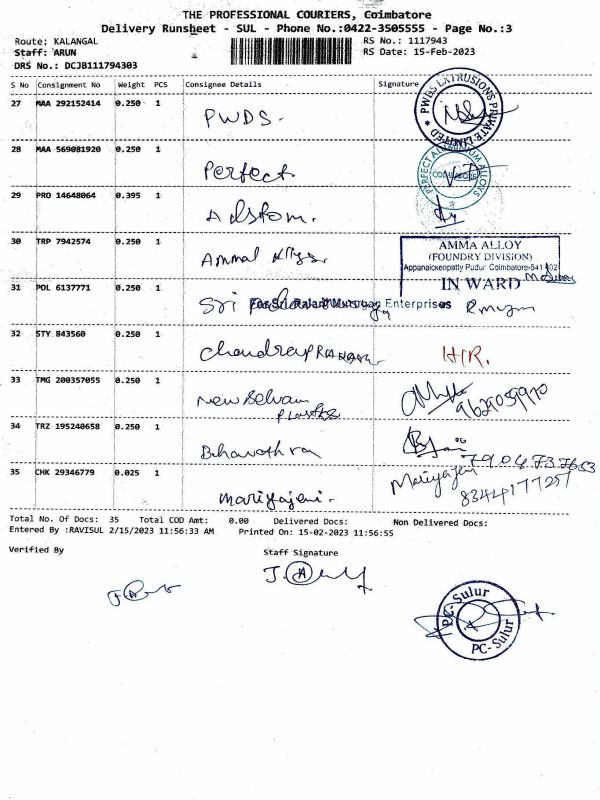 THE PROFESSIONAL COURIERS, Coimbatore
Delivery Runsheet - SUL - Phone No.:0422-3505555 - Page No.:3
Route: KALANGAL
RS No.: 1117943
Staff: ARUN
RS Date: 15-Feb-2023
DRS No.: DCJB111794303
S No Consignment No Weight PCS Consignee Details Signature
27 MAA 292152414 0.250 1 PWDS.
PWDS EXTRUSIONS PRIVATE LIMITED
28 MAA 569081920 0.250 1 Perfect
PERFECT ALUMINIUM ALLOYS
COIMBATORE
29 PRO 14648064 0.395 1
30 TRP 7942574 0.250 1 Ammal
AMMA ALLOY
(FOUNDRY DIVISION)
Appanaickenpatty Pudur Coimbatore-641 402
IN WARD
31 POL 6137771 0.250 1 Sri
For Sri Murugan Enterprises
32 STY 843560 0.250 1
33 TMG 200357055 0.250 1 New Selvam
Plastks
34 TRZ 195240658 0.250 1
35 CHK 29346779 0.025 1 mariyajeni.
8344177257
Total No. Of Docs: 35 Total COD Amt: 0.00 Delivered Docs: Non Delivered Docs:
Entered By :RAVISUL 2/15/2023 11:56:33 AM Printed On: 15-02-2023 11:56:55
Verified By Staff Signature
PC-Sulur
PC-Sulur